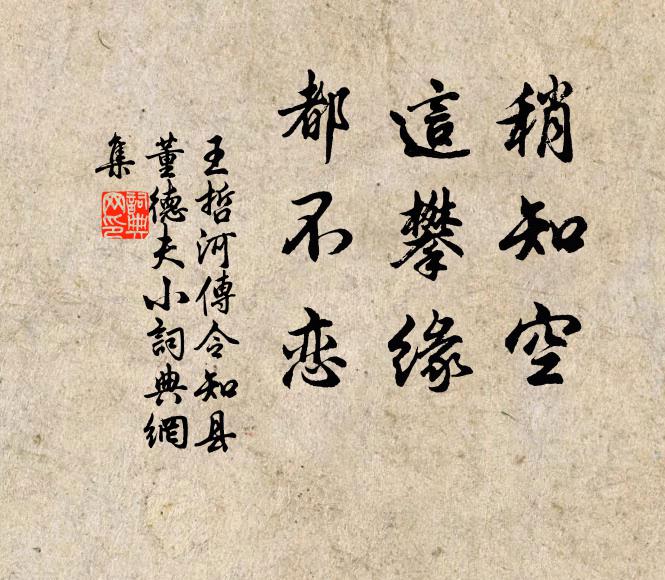 稍知空
這攀緣
都不恋
王哲河傳令知县
董德夫小詞典網
集
詞典
网印